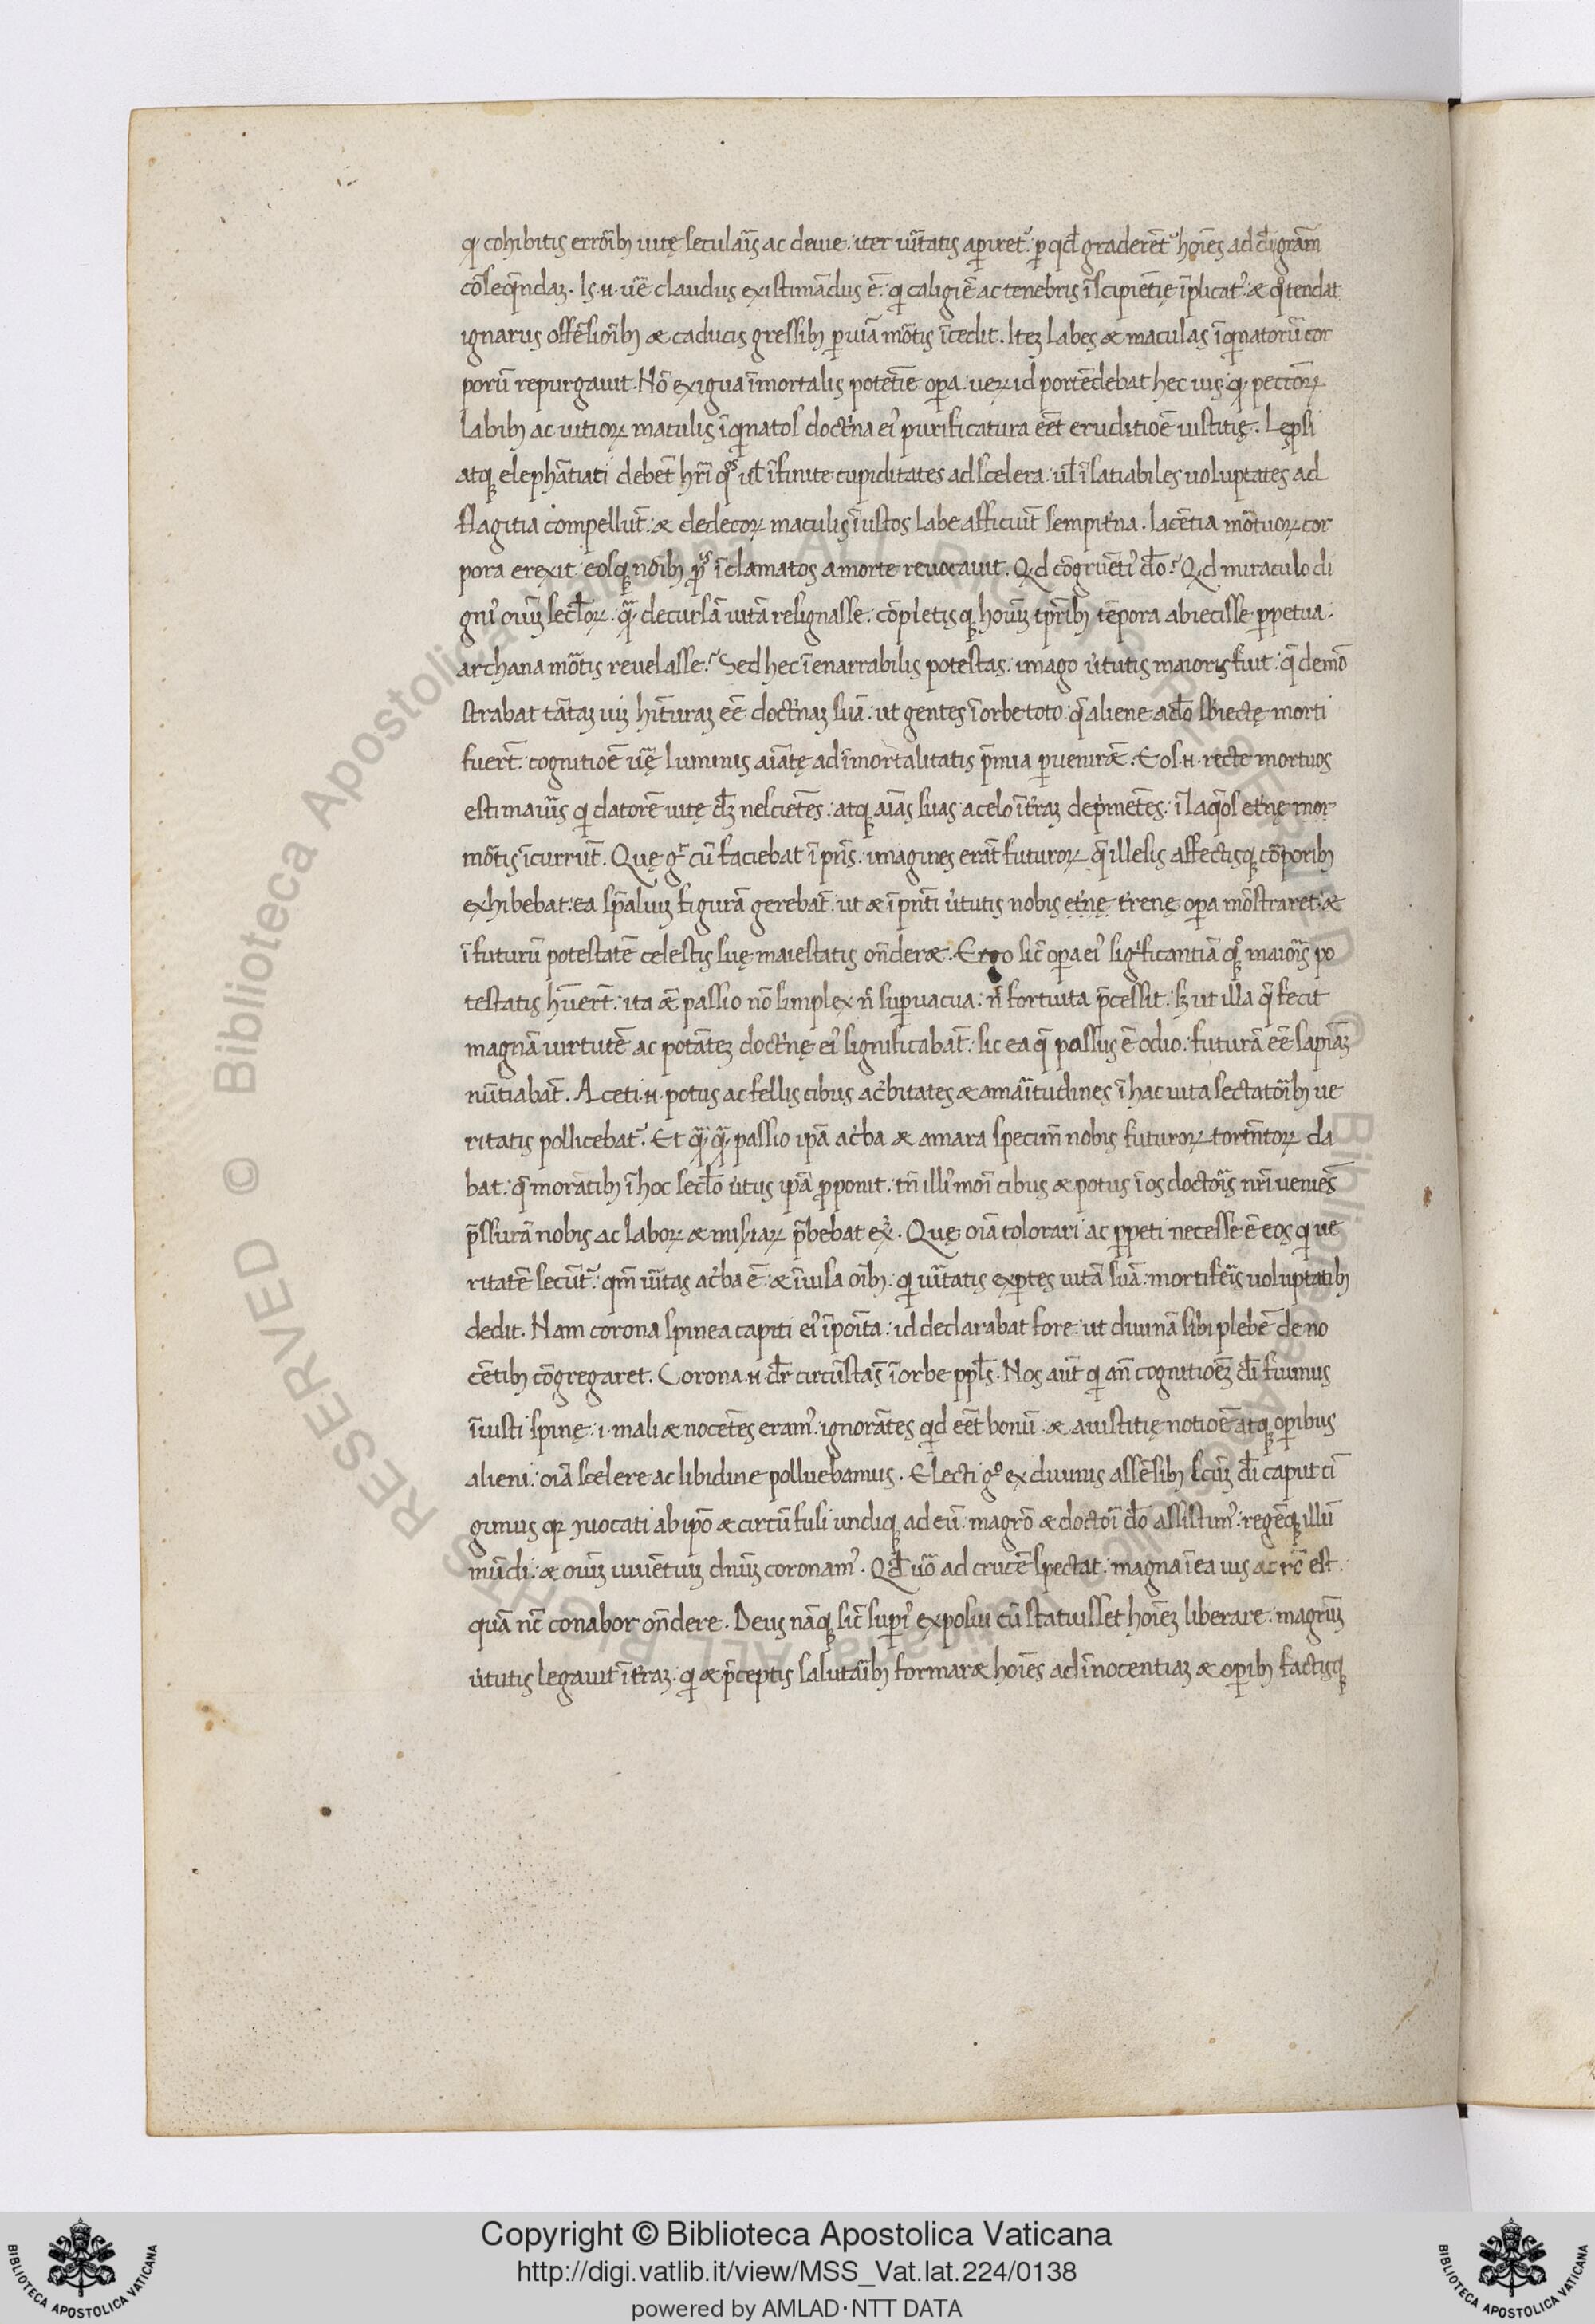 ꝙ cohibitis erroꝛ̄ib; uitę secuları̄s ac deuie: iter ūitatis aꝑiret᷑: ꝑ qd̄ graderēt᷑ hoīes ad dı̄ grām
cōseq̄ndaʒ. Is .n. uē claudus existimādus ē: qı caligīe ac tenebris īscipiētię īplicat᷑: & q̊ tendat
ignarus offēsiōıb; & caducis gressib; ꝑ uiā mōtis īcedit. Iteʒ labes & maculas īqinatorū cor
porū repurgauit. Nō exigua īmortalis potētie oꝑa: ueꝝ id portēdebat hec uis: ꝙ pectoꝝ
labib; ac uitioꝝ maculis īqinatos doctina ei᷒ purificatura eēt eruditiōe iustitię. Lepsi
atq; elephātiati debēt hr̄i q̊s ul̄ īfinite cupiditates ad scelera: ul̄ īsatiabiles uoluptates ad
flagitia compellūt: & dedecoꝝ maculis īustos labe afficiūt sempit̄na. Iacētia mōtuoꝝ cor
pora erexit: eosq; nōıb; p᷒s īclamatos a morte reuocauit. Qd cōgruēti᷒ do̅? Qd miraculo di
gni᷒ oīuʒ sec̄loꝝ: q̄ decursā uitā resignasse: cōpletisq; hoīuʒ tp̄rib; tēpora abiecisse ꝑpetua:
archana mōtis reuelasse? Sed hec īenarrabilis potestas: imago u̇tutis maioris fuit: q̄ demō
strabat tātaʒ uiʒ hīturaʒ eē doctinaʒ suā: ut gentes ī orbe toto: q̄ aliene a do̅ sb̄iectę morti
fuerı̄t: cognitiōe ūę luminis aīatę ad īmortalitatis p̄mia ꝑuenirēt. Eos .n. recte mortuos
estimauı̄s qı datorē uitę dʒ̄ nesciētes: atq; aīas suas a celo ī t̄raʒ depimētes: ī laqos et̄nę mor
mōtis īcurrūt. Quę gͦ tū faciebat ī pn̄s: imagines erāt futuroꝝ: q̄ illesis affectisq; cōꝛporib;
exhibebat: ea sp̄aliuʒ figurā gerebāt: ut & ī pn̄ti u̇tutis nobis et̄nę t̄renę oꝑa mōstraret: &
ī futurū potestatē celestis suę maiestatis on̄deret. Ergo sic̄ oꝑa ei᷒ sigificantiā q̊q; maioris po
testatis h̄uerı̄t: ita ēt passio nō simplex n̄ suꝑuacua: n̄ fortuita p̄cessit: sʒ ut illa q̄ fecit
magnā uirtutē ac potātēʒ doctinę ei᷒ significabāt: sic ea q̄ passus ē odio: futurā eē sapīaʒ
nūtiabāt. Aceti .n. potus ac fellis cibus ac̄bitates & amaritudines ī hac uita sectatoꝛıb; ue
ritatis pollicebat᷑. Et q̄q̄ passio ipa̅ ac̄ba & amara specim̄ nobis futuroꝝ torm̄toꝝ da
bat: q̄ morātib; ī hoc sec̄lo u̇tus ipa̅ ꝓponit: tn̄ illi᷒ mōi cibus & potus ī os doctoris nr̄i ueniēs
p̄ssurā nobis ac laboꝝ & miseriaꝝ p̄bebat exꝰ. Quę oīa tolorari ac ꝑpeti necesse ē eos qı ue
ritatē secūt᷑: qm̄ ūitas ac̄ba ē: & īuisa oı̄b;: qı ūitatis exꝑtes uitā suā: mortiferis uoluptatib;
dedit. Nam corona spinea capiti ei᷒ īpoīta: id declarabat fore: ut diuinā sibi plebē de no
cētib; cōgregaret. Corona .n. dr̄ circūstās ī orbe ppl̄s. Nos aūt qı an̄ cognitiōeʒ dı̄ fuimus
īiusti spinę: i. mali & nocētes eram᷒: ignorātes qd eēt bonū: & a iustitię notiōe atq; oꝑibus
alieni: oīa scelere ac libidine polluebamus. Electi gͦ ex diuinis assēsib; scūʒ dı̄ caput cī
gimus qꝛ ꝯuocati ab ipo̅ & circū fusi undiq; ad eū: magro̅ & doctoı̄ do̅ assistim᷒: regēq; illū
mūdi: & oīuʒ uiuētiuʒ dn̄uʒ coronam᷒. Qd̄ uo̅ ad crucē spectat: magna ī ea uis ac rō est:
quā nc̄ conabor on̄dere. Deus nāq; sic̄ suꝑi᷒ exposui cū statuisset hoīeʒ liberare: magrūʒ
u̇tutis legauit ī t̄raʒ: qı & p̄ceptis salutarib; formaret hoīes ad īnocentiaʒ & oꝑib; factisq;
Copyright © Biblioteca Apostolica Vaticana
http://digi.vatlib.it/view/MSS_Vat.lat.224/0138
powered by AMLAD·NTT DATA